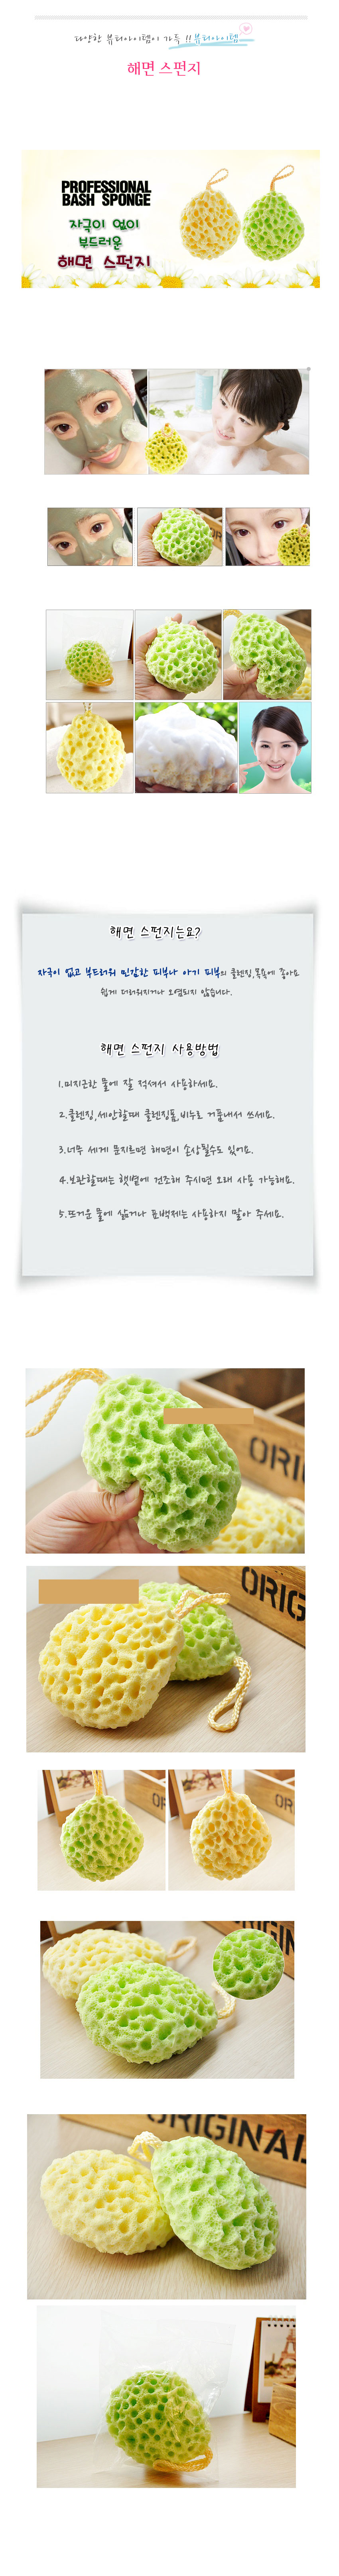 다양한 뷰티아이템이 가득 !! 뷰티아이템
해면 스펀지
PROFESSIONAL
BASH SPONGE
자극이 없이
부드러운
해면 스펀지
해면 스펀지는요?
자극이 없고 부드러워 민감한 피부나 아기 피부의 클렌징,목욕에 좋아요
쉽게 더러워지거나 오염되지 않습니다.
해면 스펀지 사용방법
1.미지근한 물에 잘 적셔서 사용하세요.
2.클렌징,세안할때 클렌징폼,비누로 거품내서 쓰세요.
3.너무 세게 문지르면 해면이 손상될수도 있어요.
4.보관할때는 햇볕에 건조해 주시면 오래 사용 가능해요.
5.뜨거운 물에 삶거나 표백제는 사용하지 말아 주세요.
ORI
ORIG
ORIGINAL